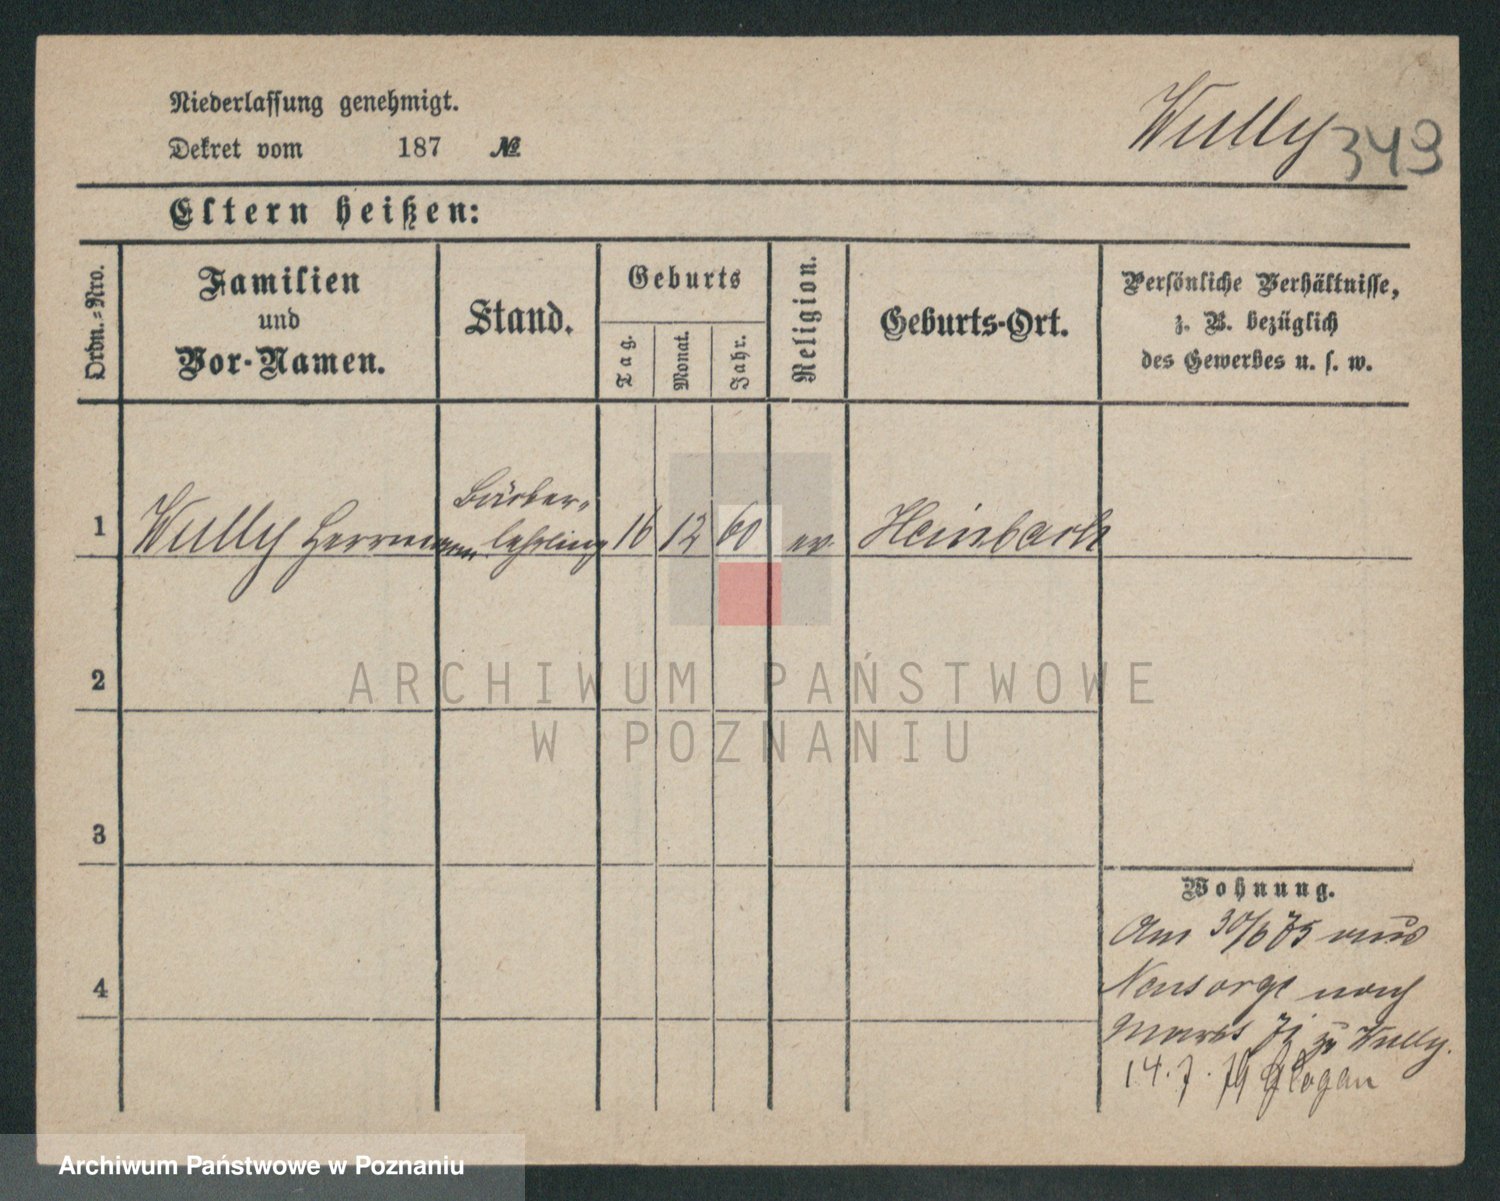 Niederlassung genehmigt.
Wully 349
Dekret vom 187 №
Eltern heißen:
Ordn.=Nro.
Familien
und
Vor-Namen.
Stand.
Geburts
Tag.
Monat.
Jahr.
Religion.
Geburts-Ort.
Persönliche Verhältnisse,
z. B. bezüglich
des Gewerbes u. s. w.
1
Wully Herrmann
lehrling
16
12
60
ev
2
3
4
Wohnung.
Am 30/6 75 aus
nach
Markt zu Wully.
14. 7. 79 Glogau
ARCHIWUM PAŃSTWOWE
W POZNANIU
Archiwum Państwowe w Poznaniu